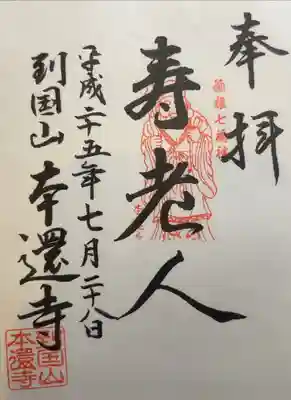 奉拝
寿老人
平成二十五年七月二十八日
到国山 本還寺
到国山
本還寺